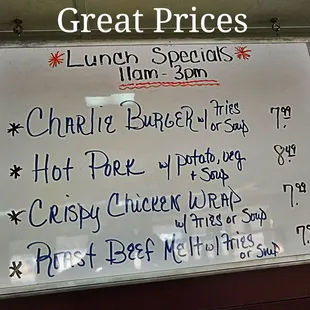 Great Prices
*Lunch Specials*
11am - 3pm
* Charlie Burger w/ Fries or Soup 7.99
* Hot Pork w/ potato, veg + Soup 8.49
* Crispy Chicken Wrap w/ Fries or Soup 7.99
* Roast Beef Melt w/ Fries or Soup 7.